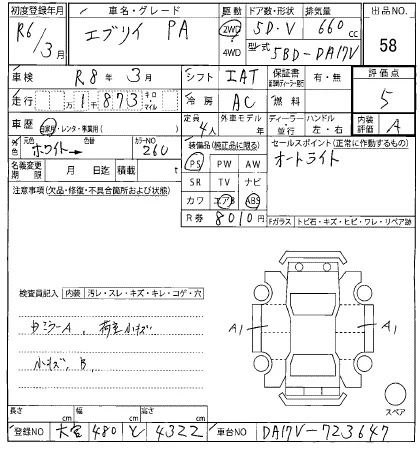 初度登録年月 車名・グレード 駆動 ドア数・形状 排気量 出品NO.
R6/3月 エブリイ PA 2WD 4WD 5D・V 660cc 58
型式 5BD-DA17V
車検 R8年3月 シフト IAT 保証書 有・無 評価点
走行 万1千873 キロ マイル 冷房 AC 燃料 5
車歴 自家用・レンタ・事業用( ) 定員 4人 外車モデル 年 ディーラー・並行 ハンドル 左・右 内装評価 A
外色 元色 ホワイト→ 色替 カラーNO. 26U 装備品(純正品に限る) セールスポイント(正常に作動するもの)
名義変更期限 月 日 積載 t PS PW AW オートライト
SR TV ナビ
注意事項(欠品・修復・不具合箇所および状態) カワ エアB ABS
R券 8010円 Fガラス トビ石・キズ・ヒビ・ワレ・リペア跡
検査員記入 内装 汚レ・スレ・キズ・キレ・コゲ・穴
A1 A1
小キズ、B
スペア
長さ cm 幅 cm 高さ cm
登録NO 大宮 480 と 4322 車台NO DA17V-723647